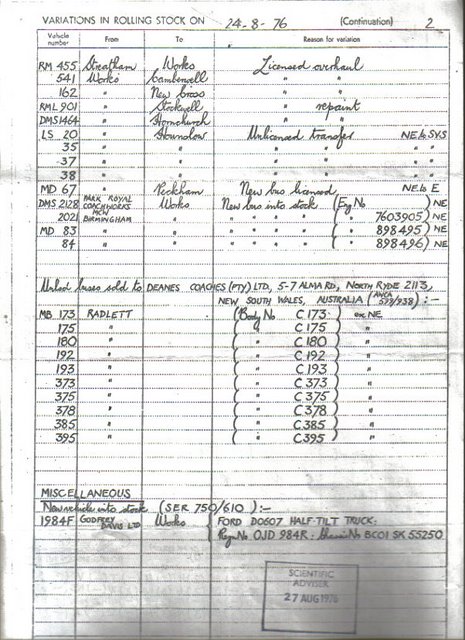 VARIATIONS IN ROLLING STOCK ON 24-8-76 (Continuation) 2
Vehicle number From To Reason for variation
RM 455 Streatham Works Licensed overhaul
541 Works Camberwell " "
162 " New Cross " "
RML 901 " Stockwell " repaint
DMS 1464 " Hornchurch " "
LS 20 " Hounslow Unlicensed transfer NE to SVS
35 " " " " "
37 " " " " "
38 " " " " "
MD 67 " Peckham New bus licensed NE to E
DMS 2128 PARK ROYAL COACHWORKS Works New bus into stock (Eng No ) NE
2021 MCW BIRMINGHAM " " " " " ( " 7603905) NE
MD 83 " " " " " " ( " 898495) NE
84 " " " " " " ( " 898496) NE
Unlicd buses sold to DEANES COACHES (PTY) LTD, 5-7 ALMA RD, NORTH RYDE 2113,
NEW SOUTH WALES, AUSTRALIA ( 577/938) :-
MB 173 RADLETT (Body No C 173) ex NE
175 " ( " C 175) "
180 " ( " C 180) "
192 " ( " C 192) "
193 " ( " C 193) "
373 " ( " C 373) "
375 " ( " C 375) "
378 " ( " C 378) "
385 " ( " C 385) "
395 " ( " C 395) "
MISCELLANEOUS
New vehicle into stock (SER 750/610) :-
1984F GODFREY DAVIS LTD Works FORD D0607 HALF-TILT TRUCK:
Regn No OJD 984R: Chassis No BC01 SK 55250
SCIENTIFIC
ADVISER
27 AUG 1976